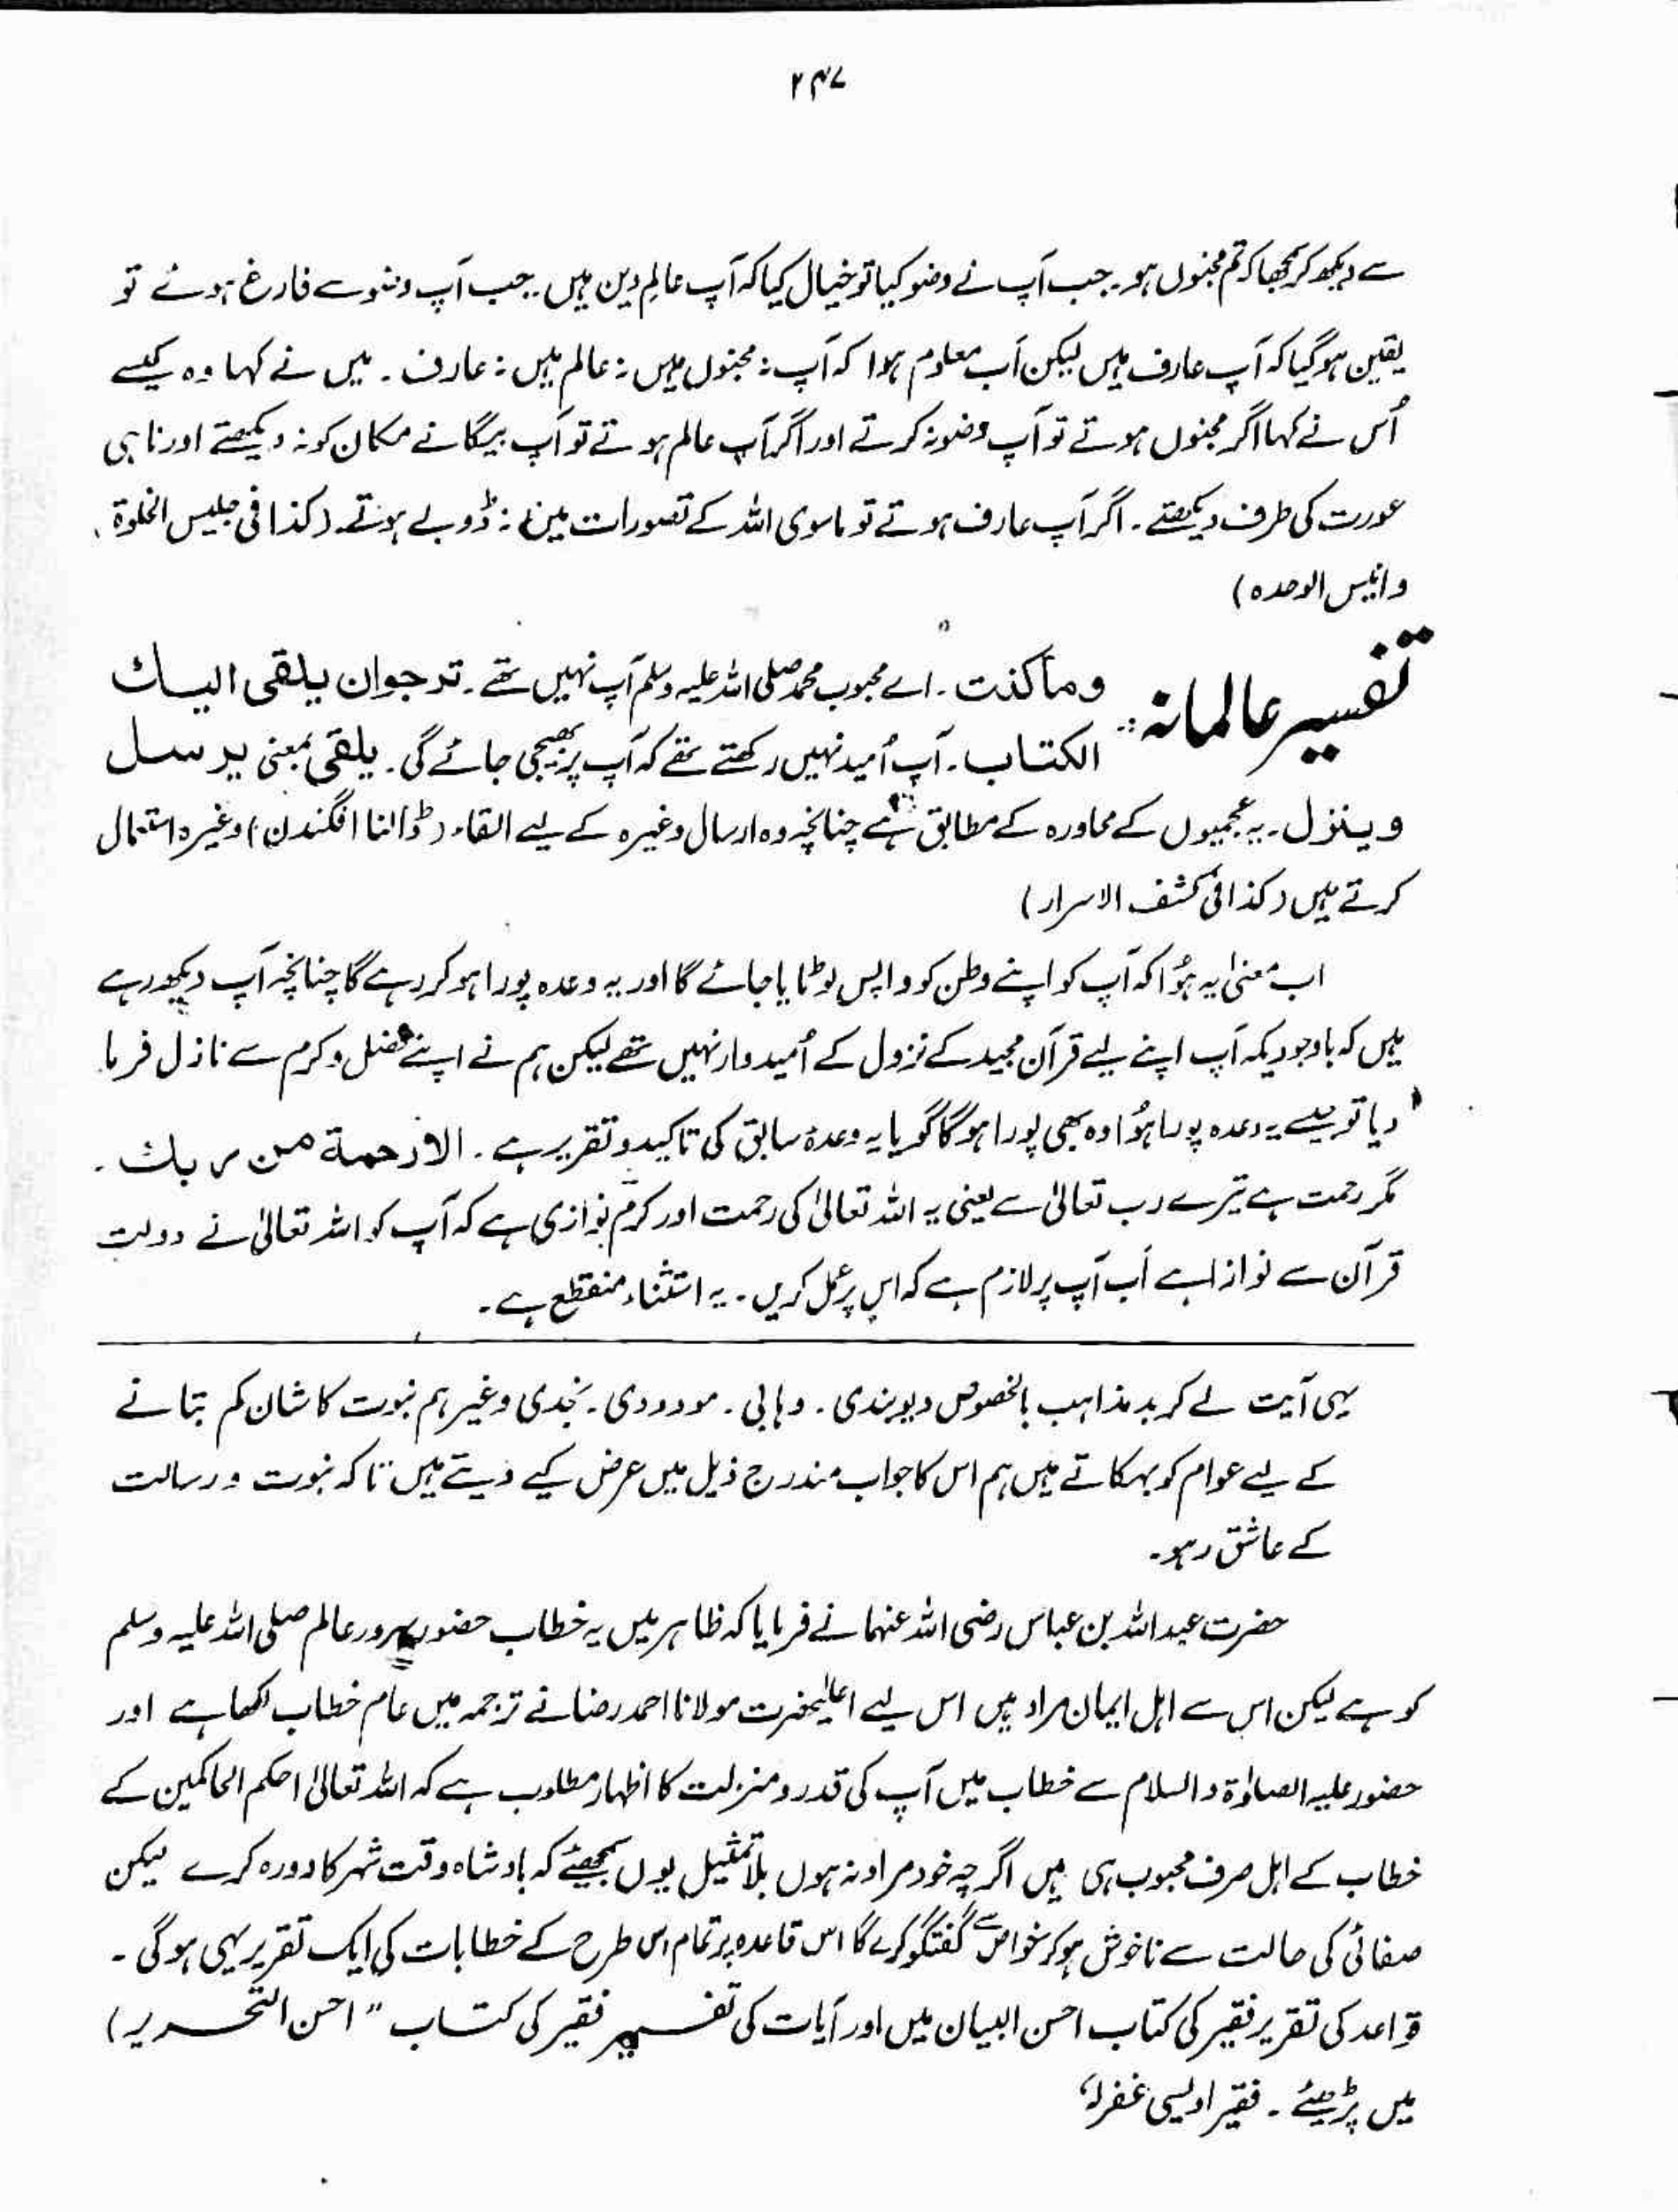 ۲۴۷
سے دیکھ کر سمجھا کہ تم مجنوں ہو۔ جب آپ نے وضو کیا تو خیال کیا کہ آپ عالمِ دین ہیں۔ جب آپ وضو سے فارغ ہوئے تو
یقین ہو گیا کہ آپ عارف ہیں لیکن اَب معلوم ہوا کہ آپ نہ مجنوں ہیں نہ عالم ہیں نہ عارف۔ میں نے کہا وہ کیسے
اُس نے کہا اگر مجنوں ہوتے تو آپ وضو نہ کرتے اور اگر آپ عالم ہوتے تو آپ بیگانے مکان کو نہ دیکھتے اور نا ہی
عورت کی طرف دیکھتے۔ اگر آپ عارف ہوتے تو ماسوی اللہ کے تصورات میں نہ ڈوبے ہوتے۔ (کذا فی جلیس الخلوۃ
و انیس الوحدہ)
تفسیر عالمانہ :: وما کنت۔ اے محبوب محمد صلی اللہ علیہ وسلم آپ نہیں تھے۔ ترجوان یلقی الیک
الکتاب۔ آپ اُمید نہیں رکھتے تھے کہ آپ پر بھیجی جائے گی۔ یلقیٰ بمعنی یرسل
وینزل۔ یہ عجمیوں کے محاورہ کے مطابق ہے چنانچہ وہ ارسال وغیرہ کے لیے القاء (ڈالنا افگندن) وغیرہ استعمال
کرتے ہیں (کذا فی کشف الاسرار)
اب معنیٰ یہ ہُوا کہ آپ کو اپنے وطن کو واپس لوٹایا جائے گا اور یہ وعدہ پورا ہو کر رہے گا چنانچہ آپ دیکھ رہے
ہیں کہ باوجودیکہ آپ اپنے لیے قرآن مجید کے نزول کے اُمیدوار نہیں تھے لیکن ہم نے اپنے فضل و کرم سے نازل فرما
دیا تو جیسے یہ وعدہ پورا ہُوا وہ بھی پورا ہوگا گویا یہ وعدۂ سابق کی تاکید و تقریر ہے۔ الا رحمة من ربك۔
مگر رحمت ہے تیرے رب تعالیٰ سے یعنی یہ اللہ تعالیٰ کی رحمت اور کرم نوازی ہے کہ آپ کو اللہ تعالیٰ نے دولت
قرآن سے نوازا ہے اَب آپ پر لازم ہے کہ اس پر عمل کریں۔ یہ استثناء منقطع ہے۔
یہی آیت لے کر بد مذاہب بالخصوص دیوبندی۔ وہابی۔ مودودی۔ نجدی وغیرہم نبوت کا شان کم بتانے
کے لیے عوام کو بہکاتے ہیں ہم اس کا جواب مندرج ذیل میں عرض کیے دیتے ہیں تاکہ نبوت و رسالت
کے عاشق رہو۔
حضرت عبداللہ بن عباس رضی اللہ عنہما نے فرمایا کہ ظاہر میں یہ خطاب حضور سرور عالم صلی اللہ علیہ وسلم
کو ہے لیکن اس سے اہل ایمان مراد ہیں اس لیے اعلیٰحضرت مولانا احمد رضا نے ترجمہ میں عام خطاب لکھا ہے اور
حضور علیہ الصلوٰۃ والسلام سے خطاب میں آپ کی قدر و منزلت کا اظہار مطلوب ہے کہ اللہ تعالیٰ احکم الحاکمین کے
خطاب کے اہل صرف محبوب ہی ہیں اگرچہ خود مراد نہ ہوں بلا تمثیل یوں سمجھئے کہ بادشاہ وقت شہر کا دورہ کرے لیکن
صفائی کی حالت سے ناخوش ہو کر خواص سے گفتگو کرے گا اس قاعدہ پر تمام اس طرح کے خطابات کی ایک تقریر یہی ہوگی۔
قواعد کی تقریر فقیر کی کتاب احسن البیان میں اور آیات کی تفسیر فقیر کی کتاب "احسن التحریر)
میں پڑھیئے۔ فقیر اویسی غفرلہٗ